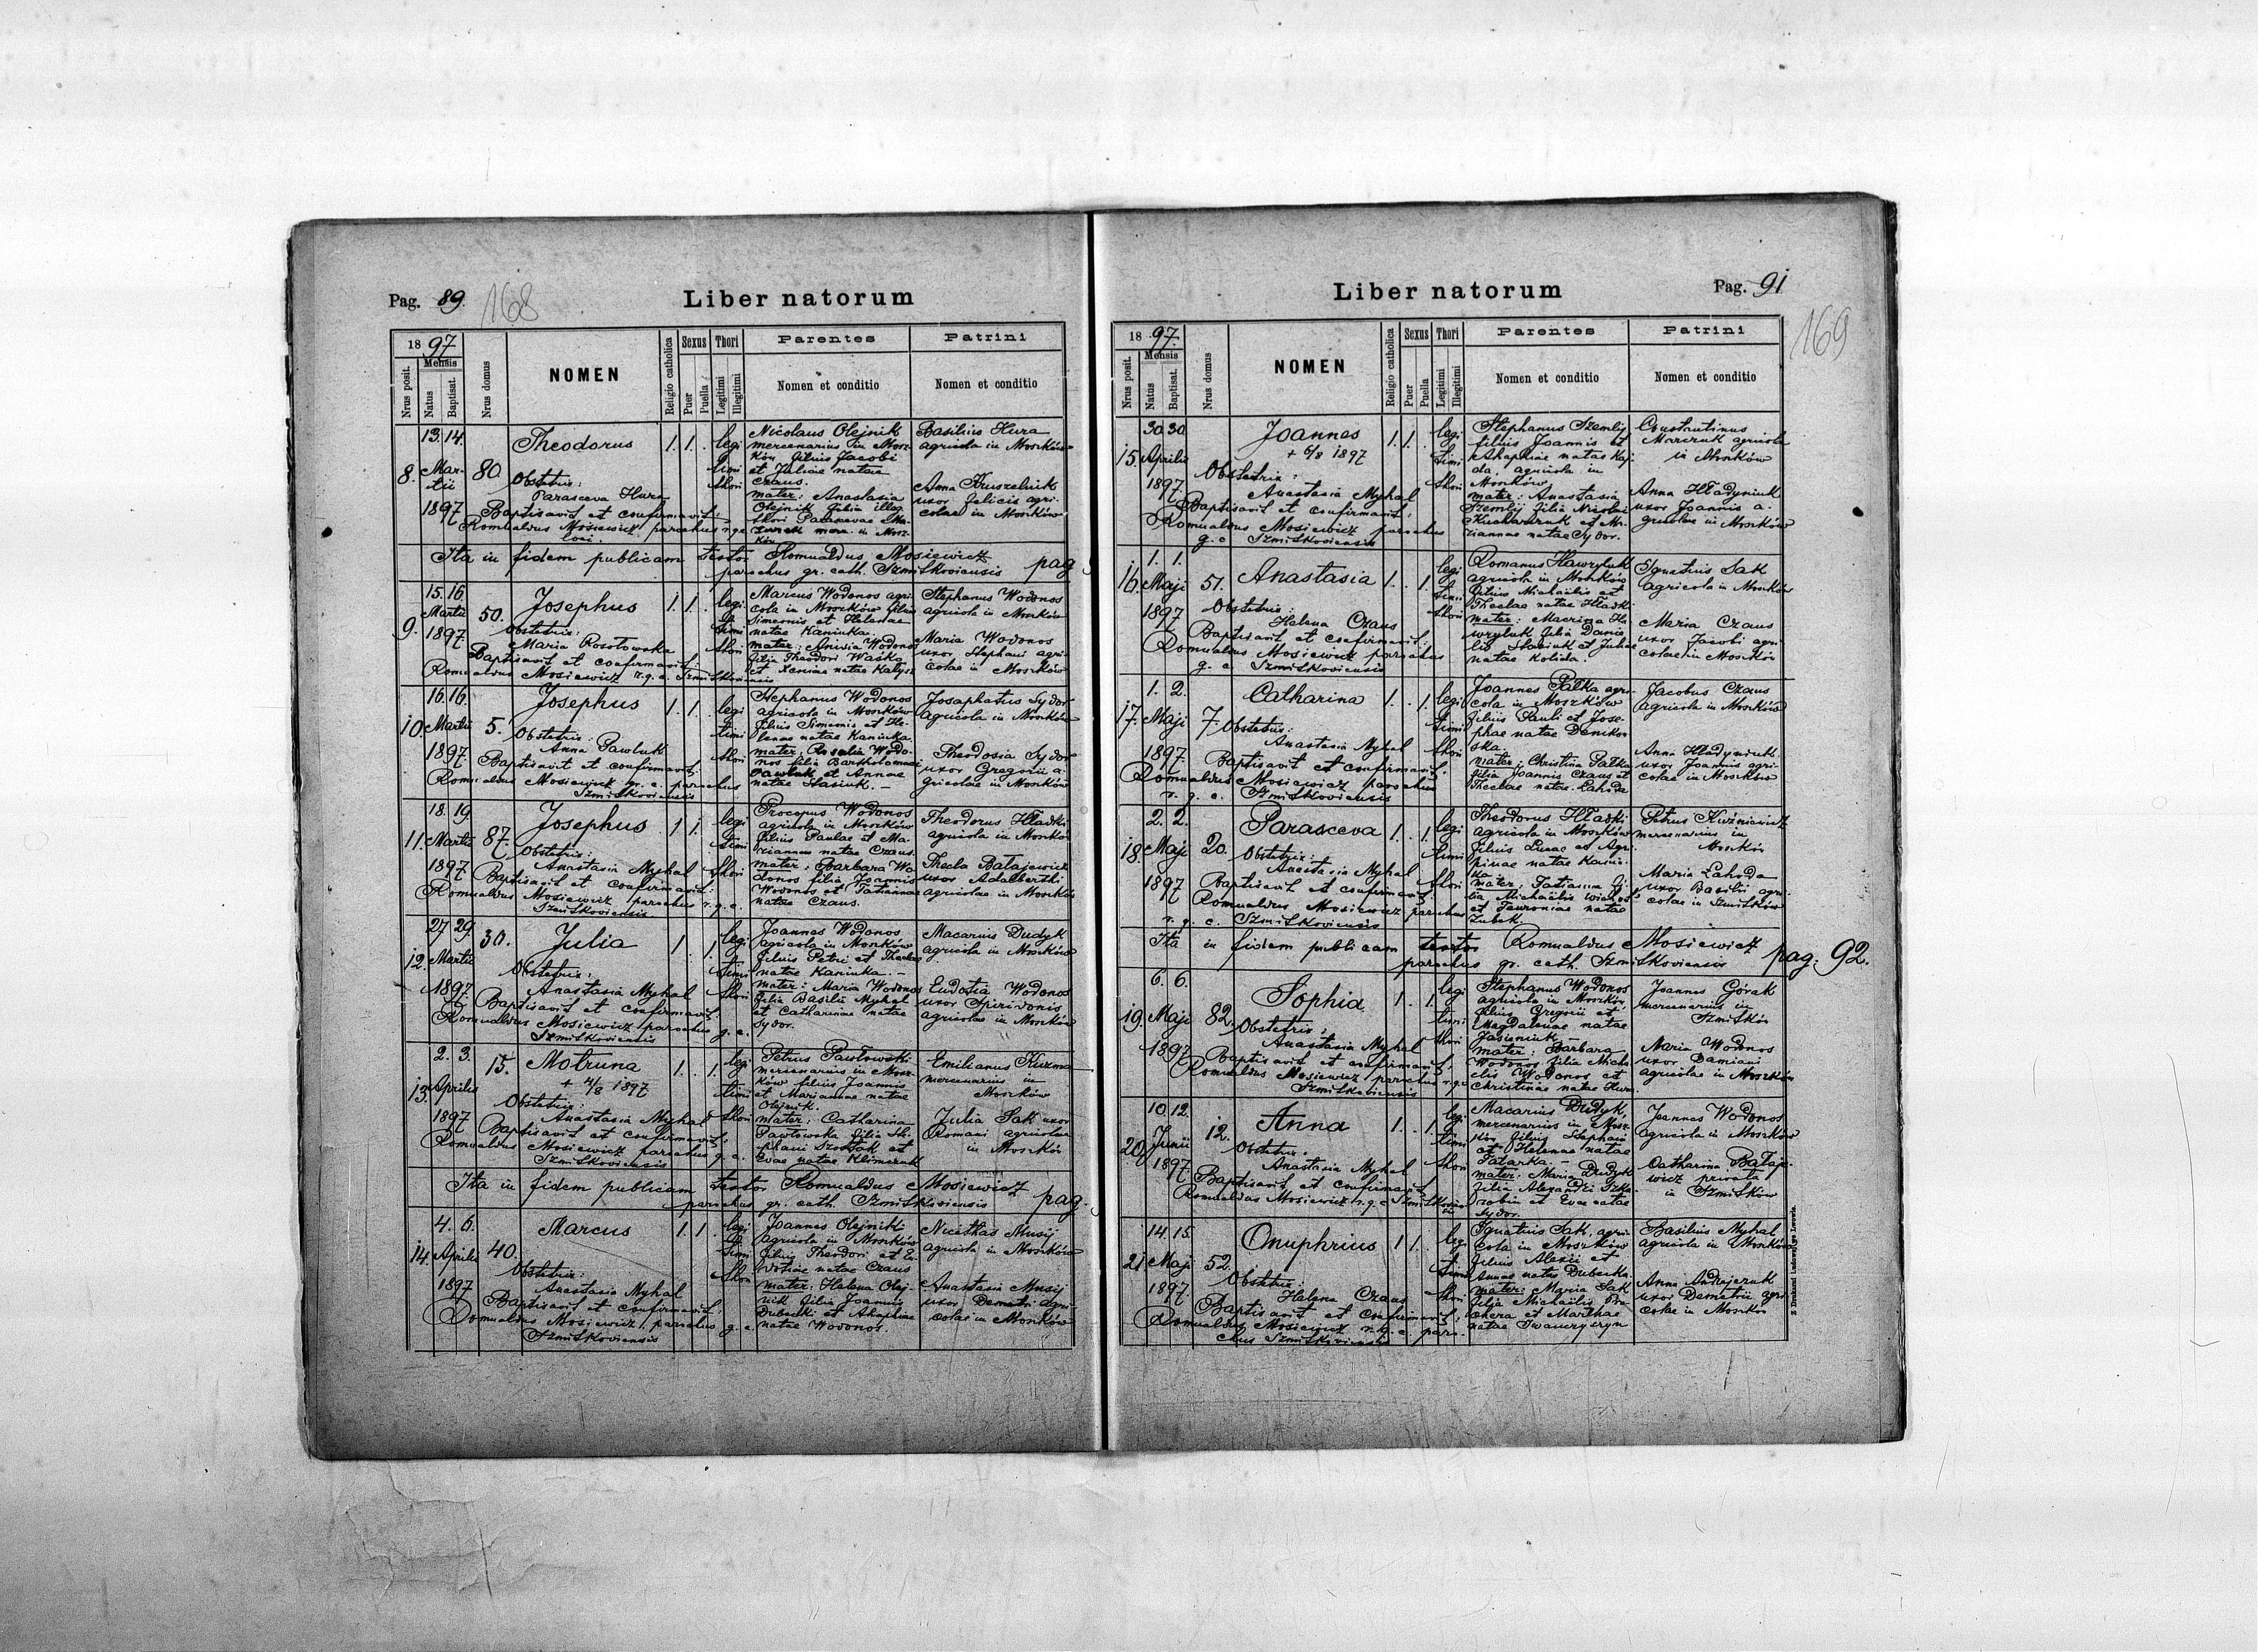 Pag. 89. 168
Liber natorum
1897
Nrus posit.
Mensis
Natus
Baptisat.
Nrus domus
NOMEN
Religio catholica
Sexus
Puer
Puella
Thori
Legitimi
Illegitimi
Parentes
Nomen et conditio
Patrini
Nomen et conditio
8.
13. 14.
Martii
1897
80.
Theodorus
1. 1. .
legi
timi
thori
Obstetrix:
Parasceva Hura
Baptisavit et confirmavit:
Romualdus Mosiewicz parochus r.g.c.
loci.
Nicolaus Olejnik
mercenarius in Mosz-
ków filius Jacobi
et Juliae natae
Czaus.
mater: Anastasia
Olejnik filia illeg.
thori Parascevae
Basilius Hura
agricola in Moszków
Anna Kruszelnik
uxor Felicis agri-
colae in Moszków
Ita in fidem publicam testor Romualdus Mosiewicz
parochus gr. cath. Szmitkoviensis pag.
9.
15. 16
Martii
1897
50.
Josephus
1. 1. .
legi
timi
thori
Obstetrix:
Maria Rosołowska
Baptisavit et confirmavit:
Romualdus Mosiewicz r.g.c. Szmitkoviensis
Marcus Wodonos agri-
cola in Moszków filius
Simeonis et Helenae
natae Kaniuka.
mater: Anisia Wodonos
filia Theodori Waśko
et Xeniae natae
Stephanus Wodonos
agricola in Moszków
Maria Wodonos
uxor Stephani agri-
colae in Moszków
10.
16. 16.
Martii
1897
5.
Josephus
1. 1. .
legi
timi
thori
Obstetrix:
Anna Pawluk
Baptisavit et confirmavit:
Romualdus Mosiewicz gr. c. parochus
Szmitkoviensis
Stephanus Wodonos
agricola in Moszków
filius Simeonis et He-
lenae natae Kaniuka.
mater: Rosalia Wodo-
nos filia Bartholomaei
Pawluk et Annae
natae Stasiuk. –
Josaphatus Sydor
agricola in Moszków
Theodosia Sydor
uxor Gregorii a-
gricolae in Moszków
11.
18. 19
Martii
1897
87.
Josephus
1. 1. .
legi
timi
thori
Obstetrix:
Anastasia Myhal
Baptisavit et confirmavit:
Romualdus Mosiewicz parochus r.g.c.
Szmitkoviensis
Procopus Wodonos
agricola in Moszków
filius Paulae et Ma-
riannae natae Czaus.
mater: Barbara Wo-
donos filia Joannis
Wodonos et Tatiannae
natae Czaus.
Theodorus Hładki
agricola in Moszków
Thecla Batajewicz
uxor Adalberti
agricolae in Moszków
12.
27. 29.
Martii
1897
30.
Julia
1. . 1.
legi
timi
thori
Obstetrix:
Anastasia Myhal
Baptisavit et confirmavit:
Romualdus Mosiewicz parochus g. c.
Szmitkoviensis
Joannes Wodonos
agricola in Moszków
filius Petri et Theclae
natae Kaniuka. –
mater: Maria Wodonos
filia Basilii Myhal
et Catharinae natae
Sydor.
Macarius Dudyk
agricola in Moszków
Eudotia Wodonos
uxor Spiridonis
agricolae in Moszków
13.
2. 3.
Aprilis
1897
15.
Motruna
+ 4/8 1897
1. . 1.
legi
timi
thori
Obstetrix:
Anastasia Myhal
Baptisavit et confirmavit:
Romualdus Mosiewicz parochus g. c.
Szmitkoviensis
Petrus Pawłowski
mercenarius in Mosz-
ków filius Joannis
et Mariannae natae
Olejnik.
mater: Catharina
Pawłowska filia Ste-
phani Szostak et
Evae natae Klimczuk
Emilianus Kuzma
mercenarius in
Moszków
Julia Sak uxor
Romani agricolae
in Moszków
Ita in fidem publicam testor Romualdus Mosiewicz
parochus gr. cath. Szmitkoviensis pag.
14.
4. 6.
Aprilis
1897
40.
Marcus
1. 1. .
legi
timi
thori
Obstetrix:
Anastasia Myhal
Baptisavit et confirmavit:
Romualdus Mosiewicz, parochus g. c.
Szmitkoviensis
Joannes Olejnik
agricola in Moszków
filius Theodori et Eu-
dotiae natae Czaus
mater: Helena Olej-
nik filia Joannis
Dubecki et Ahafiae
natae Wodonos.
Nicethas Musij
agricola in Moszków
Anastasia Musij
uxor Demetri agri-
colae in Moszków
Liber natorum
Pag. 91
169
1897.
Nrus posit.
Mensis
Natus
Baptisat.
Nrus domus
NOMEN
Religio catholica
Sexus
Puer
Puella
Thori
Legitimi
Illegitimi
Parentes
Nomen et conditio
Patrini
Nomen et conditio
15.
30. 30.
Aprilis
1897
Joannes
+ 6/8 1897
1. 1. .
legi
timi
thori
Obstetrix:
Anastasia Myhal
Baptisavit et confirmavit:
Romualdus Mosiewicz parochus
g. c. Szmitkoviensis
Stephanus Szemlij
filius Joannis et
Ahaphiae natae Haj-
da, agricola in
Moszków
mater: Anastasia
Szemlij filia Nicolai
Kucharczuk et Ma-
riannae natae Sydor.
Constantinus
Marczuk agricola
in Moszków
Anna Hładyniuk
uxor Joannis a-
gricolae in Moszków
16.
1. 1.
Maji
1897
51.
Anastasia
1. . 1.
legi
timi
thori
Obstetrix:
Helena Czaus
Baptisavit et confirmavit:
Romualdus Mosiewicz parochus
g. c. Szmitkoviensis
Romanus Hawryluk
agricola in Moszków
filius Michaëlis et
Theclae natae Hładki
mater: Macrina Ha-
wryluk filia Danie-
lis Stasiuk et Juliae
natae Kolida.
Ignatius Sak
agricola in Moszków
Maria Czaus
uxor Jacobi agri-
colae in Moszków
17.
1. 2.
Maji
1897.
7.
Catharina
1. . 1.
legi
timi
thori
Obstetrix:
Anastasia Myhal
Baptisavit et confirmavit:
Romualdus Mosiewicz parochus
r. g. c. Szmitkoviensis
Joannes Pałka agri-
cola in Moszków
filius Pauli et Jose-
phae natae Denikow-
ska.
mater: Christina Pałka
filia Joannis Czaus et
Theclae natae Lahoda
Jacobus Czaus
agricola in Moszków
Anna Hładyniuk
uxor Joannis agri-
colae in Moszków
18.
2. 2.
Maji
1897
20.
Parasceva
1. . 1.
legi
timi
thori
Obstetrix:
Anastasia Myhal
Baptisavit et confirmavit:
Romualdus Mosiewicz parochus
r. g. c. Szmitkoviensis
Theodorus Hładki
agricola in Moszków
filius Lucae et Agri-
pinae natae Kaniu-
ka.
mater: Tatianna fi-
lia Michaëlis
et Fevroniae natae
Zubek.
Petrus Kuźniewicz
mercenarius in
Moszków
Maria Lahoda
uxor Basilii agri-
colae in Szmitków
Ita in fidem publicam testor Romualdus Mosiewicz
parochus gr. cath. Szmitkoviensis pag. 92.
19.
6. 6.
Maji
1897
82.
Sophia
1. . 1.
legi
timi
thori
Obstetrix:
Anastasia Myhal
Baptisavit et confirmavit:
Romualdus Mosiewicz parochus r.g.c.
Szmitkoviensis
Stephanus Wodonos
agricola in Moszków,
filius Gregorii et
Magdalenae natae
Jasiuniuk.
mater: Barbara
Wodonos filia Micha-
elis Wodonos et
Christinae natae Hura.
Joannes Górak
mercenarius in
Szmitków
Maria Wodonos
uxor Damiani
agricolae in Moszków
20.
10. 12.
Junii
1897.
12.
Anna
1. . 1.
legi
timi
thori
Obstetrix:
Anastasia Myhal
Baptisavit et confirmavit
Romualdus Mosiewicz r.g.c. Szmitkovien-
Macarius Dudyk,
mercenarius in Mosz-
ków filius Stephani
et Helenae natae
Tatarka.
mater: Maria Dudyk
filia Alexandri
et Evae natae
Sydor.
Joannes Wodonos
agricola in Moszków
Catharina Bataje-
wicz privata
in Szmitków
21.
14. 15.
Maji
1897.
52.
Onuphrius
1. 1. .
legi
timi
thori
Obstetrix:
Helena Czaus
Baptisavit et confirmavit:
Romualdus Mosiewicz r. g. c. paro-
chus Szmitkoviensis
Ignatius Sak, agri-
cola in Moszków
filius Alexii et
Annae natae Dubecka.
mater: Maria Sak
filia Michaëlis Pro-
chera et Marthae
natae
Basilius Myhal
agricola in Moszków
Anna Andrejczuk
uxor Demetrii agri-
colae in Moszków
Z Drukarni Ludowej we Lwowie.